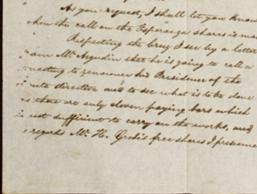 As you request, I shall let you know
when the call on the Esperanza shares is made
Respecting the brig I see by a letter
from Mr. that he is going to call a
meeting to his of the
direction and to see what is to be done
as there are only eleven paying bars which
is not sufficient to carry on the works, and
regards Mr. H. free shares I presume